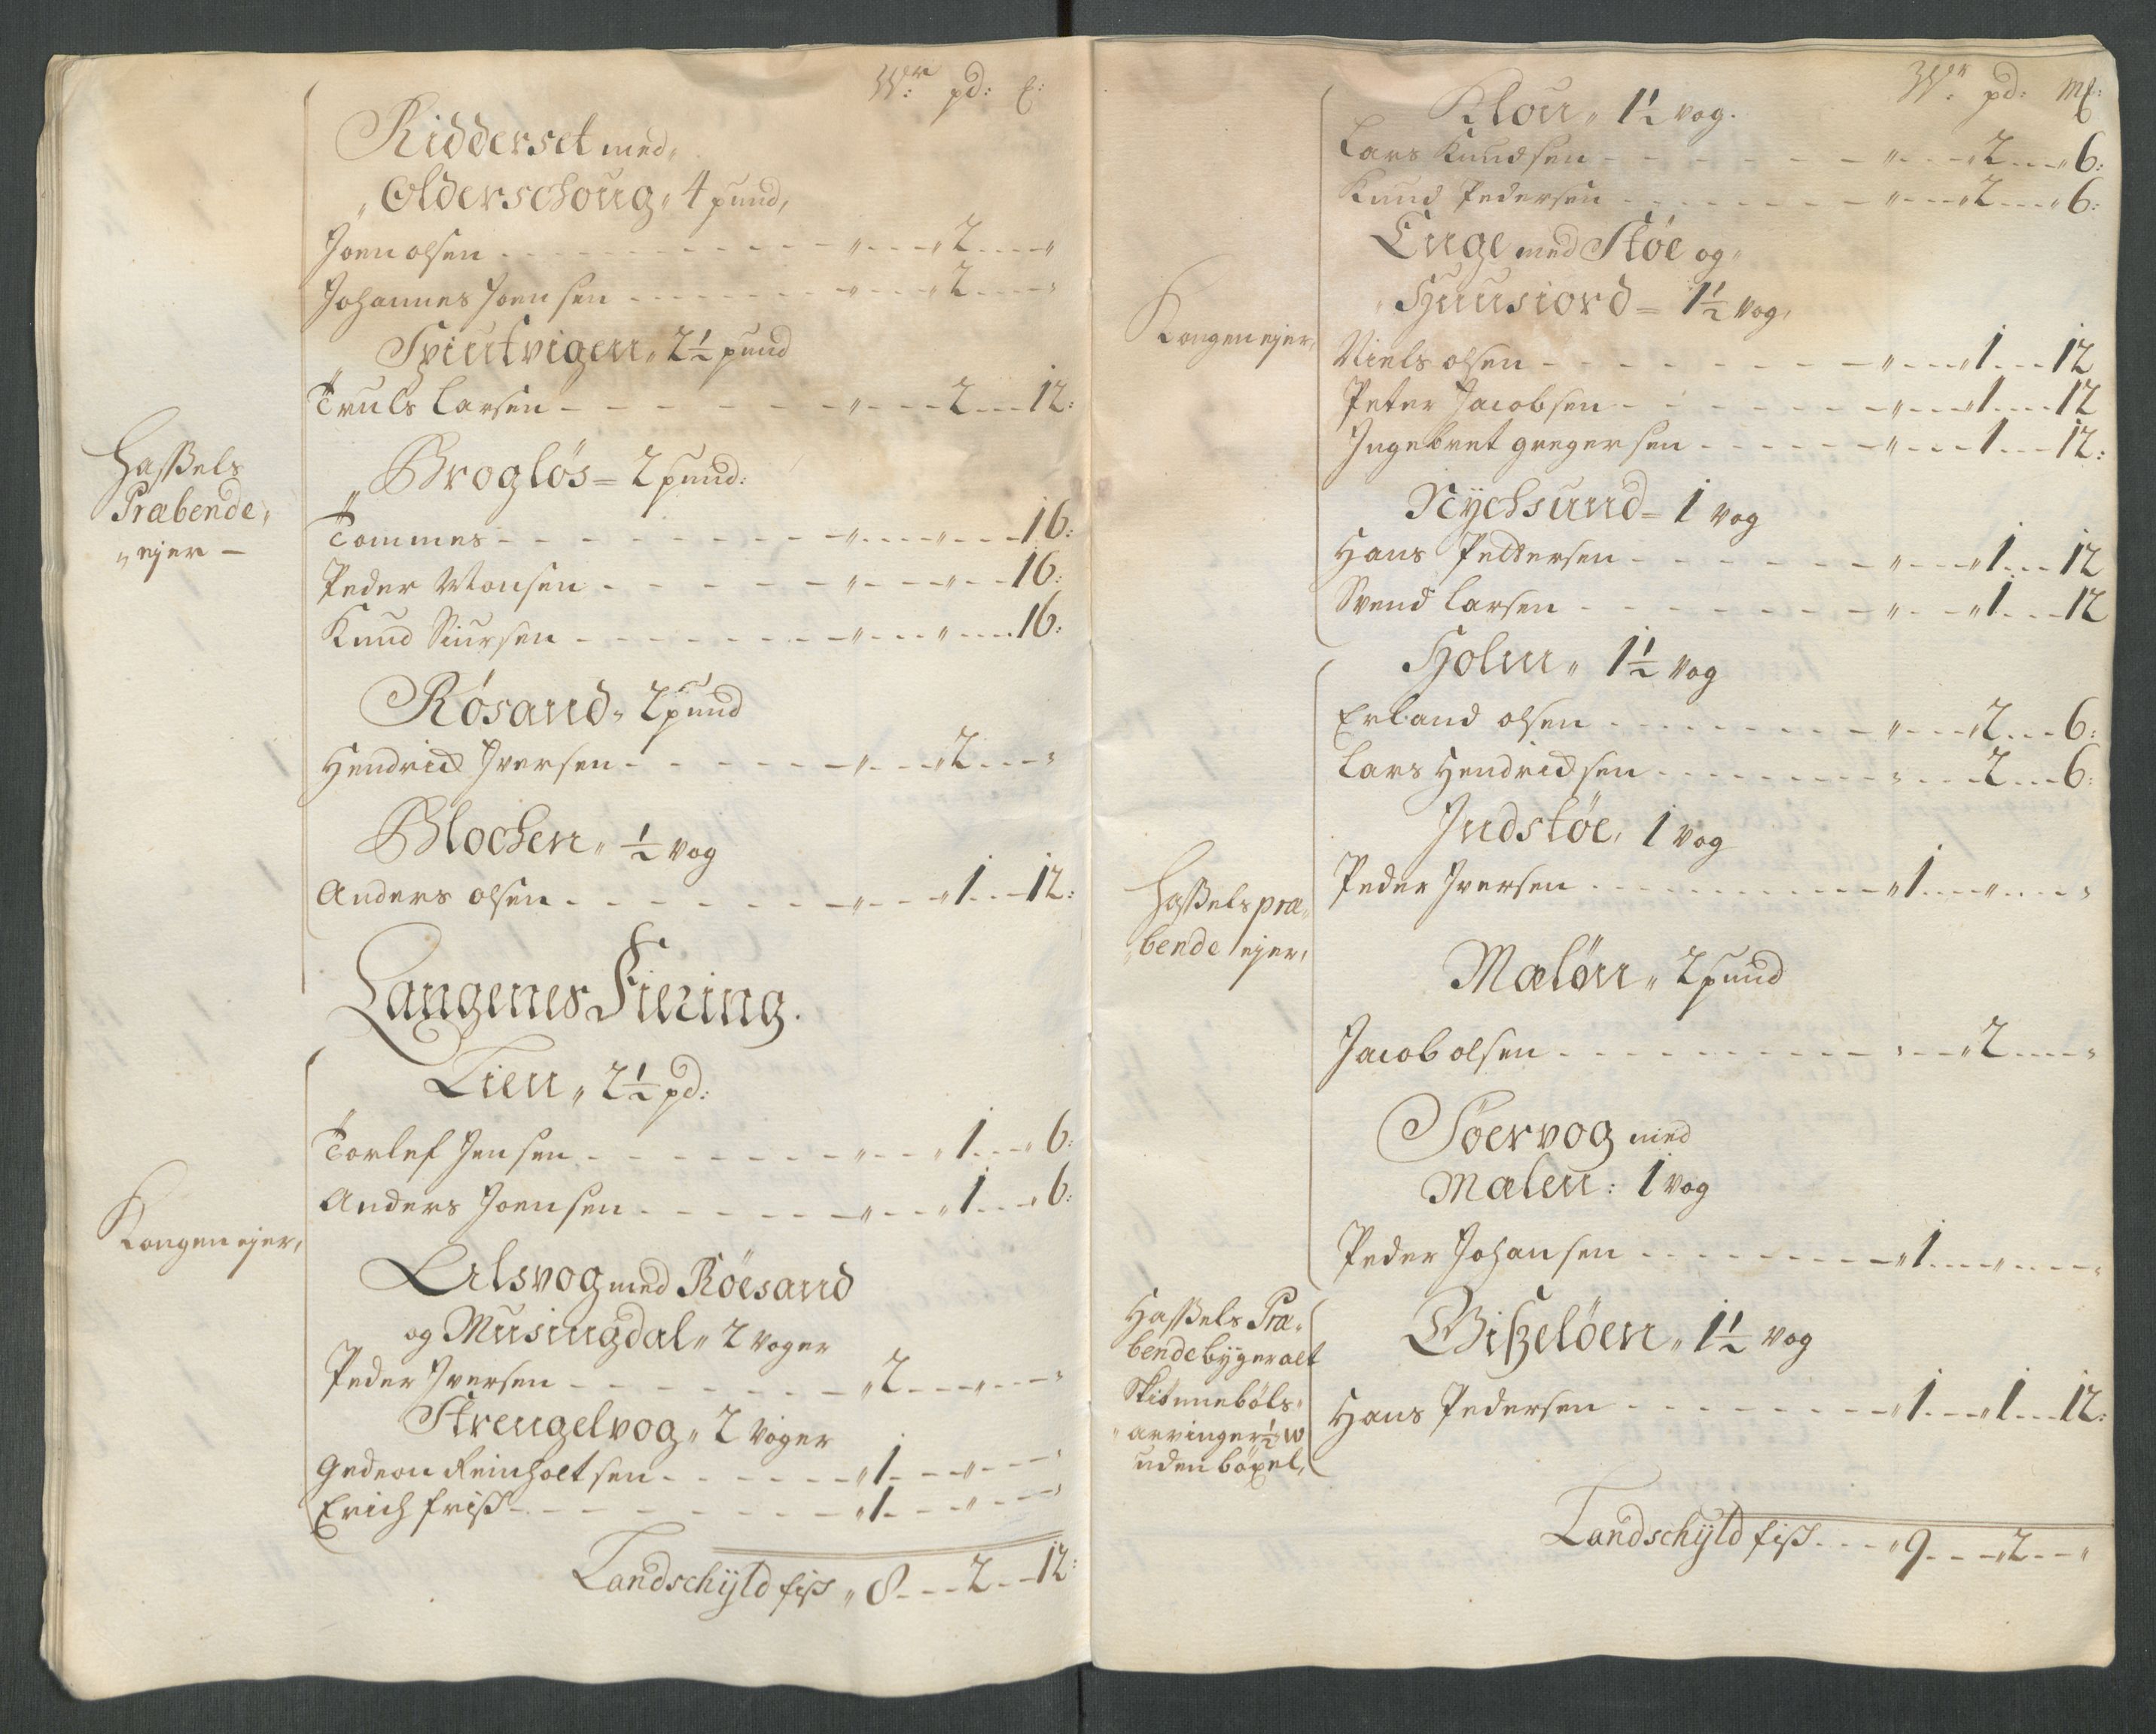 W:r pd: ℔:
Ridderset med„
„Olderschoug„ 4 pund,
Joen olsen - - - „ - - „2 - - „
Johannes Joensen - - - „ - - „2 - - „
Spiutvigen„ 2½ pund
Truls Larsen - - - „ - - 2 - - 12:
Hassels
Præbende„
„ejer -
Brogløs = 2 pund:
Tommes - - - „ - - „ - - 16:
Peder Monsen - - - „ - - „ - - 16:
Knud Siursen - - - „ - - „ - - 16:
Røsand„ 2 pund
Hendrich Iversen - - - „ - - „2 - - „
Blochen„ ½ vog
Anders olsen - - - „ - - „1 - - 12:
Langenes Fiering.
Lien„ 2½ pd:
Torlef Jensen - - - „ - - „1 - - 6:
Anders Joensen - - - „ - - „1 - - 6:
Kongen ejer,
Alsvog med Røesand
og Musingdal„ 2 voger
Peder Iversen - - - „2 - - „ - - „
Strengelvog„ 2 voger
Gedeon Reinholtsen - - - „1 - - „ - - „
Erich friss - - - „1 - - „ - - „
Landschyld fisk „8 - - 2 - - 12:
W:r pd: M℔:
Klou„ 1½ vog.
Lars Knudsen - - - „ - - „2 - - „6:
Knud Pedersen - - - „ - - „2 - - „6:
Enge med Støe og„
„Huusiord = 1½ vog,
Kongen ejer,
Niels olsen - - - „ - - „1 - - 12
Peter Jacobsen - - - „ - - „1 - - 12
Ingebret gregersen - - - „ - - 1 - - 12:
Nychsund = 1 vog
Hans Pettersen - - - „ - - „1 - - 12
Svend Larsen - - - „ - - „1 - - 12
Holm„ 1½ vog
Erland olsen - - - „ - - „2 - - 6:
Lars Hendrichsen - - - „ - - 2 - - 6:
Indstøe, 1 vog
Peder Iversen - - - „1 - - „ - - „
Hassels præ„
„bende ejer,
Maløn„ 2 pund
Jacob olsen - - - „ - - „2 - - „
Søervog med
Malen: 1 vog
Peder Johansen - - - „1 - - „ - - „
Hassels Præ„
bende bygger alt
„arvinger ½ w
uden bøxel,
Giszeløen„ 1½ vog
Hans Pedersen - - - „1 - - „1 - - 12:
Landschyld fisk - - - „9 - - „2 - - „